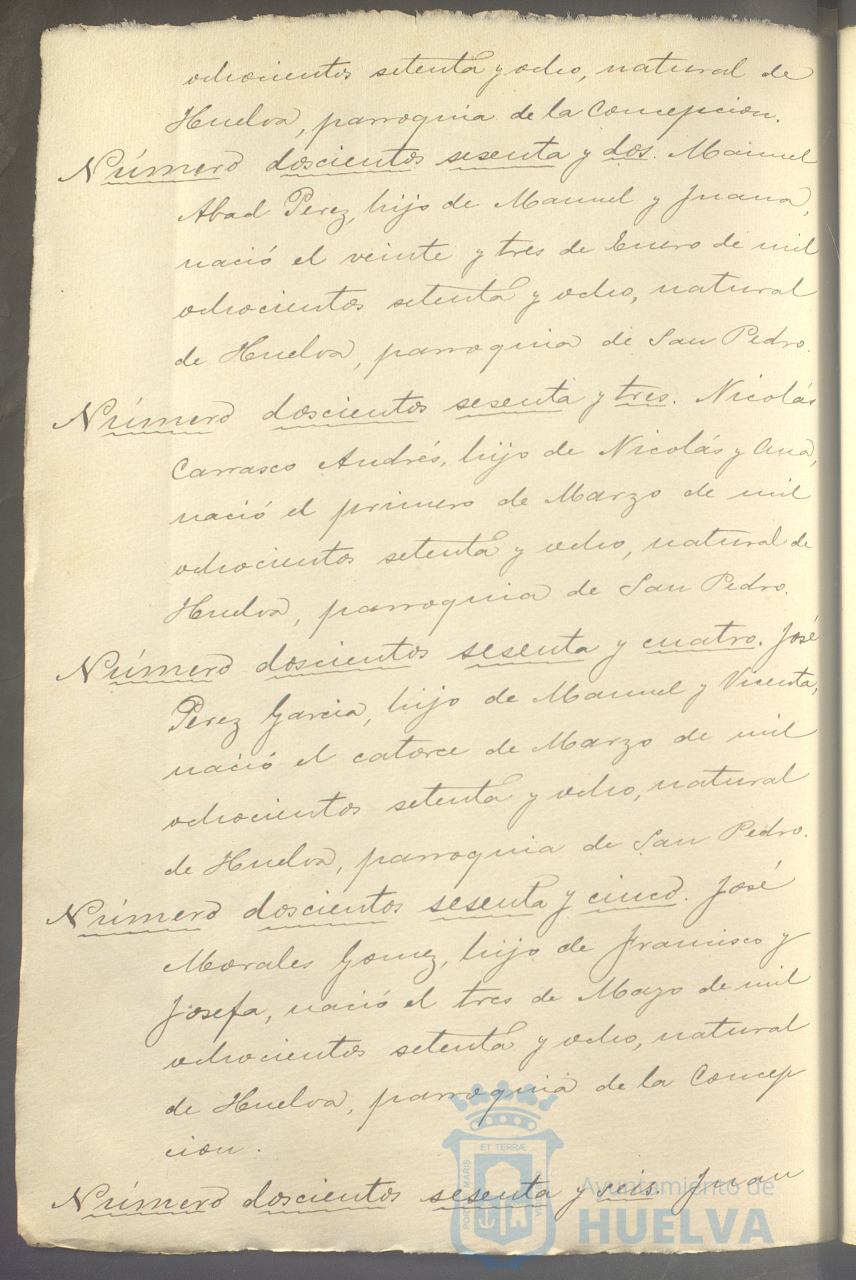 ochocientos setenta y ocho, natural de
Huelva, parroquia de la Concepcion.
Número doscientos sesenta y dos. Manuel
Abad Perez, hijo de Manuel y Juana,
nació el veinte y tres de Enero de mil
ochocientos setenta y ocho, natural
de Huelva, parroquia de San Pedro.
Número doscientos sesenta y tres. Nicolás
Carrasco Andrés, hijo de Nicolás y Ana,
nació el primero de Marzo de mil
ochocientos setenta y ocho, natural de
Huelva, parroquia de San Pedro.
Número doscientos sesenta y cuatro. José
Perez Garcia, hijo de Manuel y Vicenta,
nació el catorce de Marzo de mil
ochocientos setenta y ocho, natural
de Huelva, parroquia de San Pedro.
Número doscientos sesenta y cinco. José
Morales Gomez, hijo de Francisco y
Josefa, nació el tres de Mayo de mil
ochocientos setenta y ocho, natural
de Huelva, parroquia de la Concep
cion.
Número doscientos sesenta y seis. Juan
ET TERRÆ
PORTUS MARIS
Ayuntamiento de
HUELVA